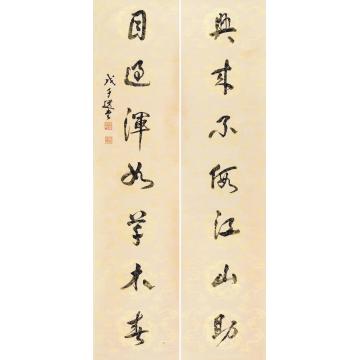 興來不假江山助
目過渾如草木春
戊子選堂